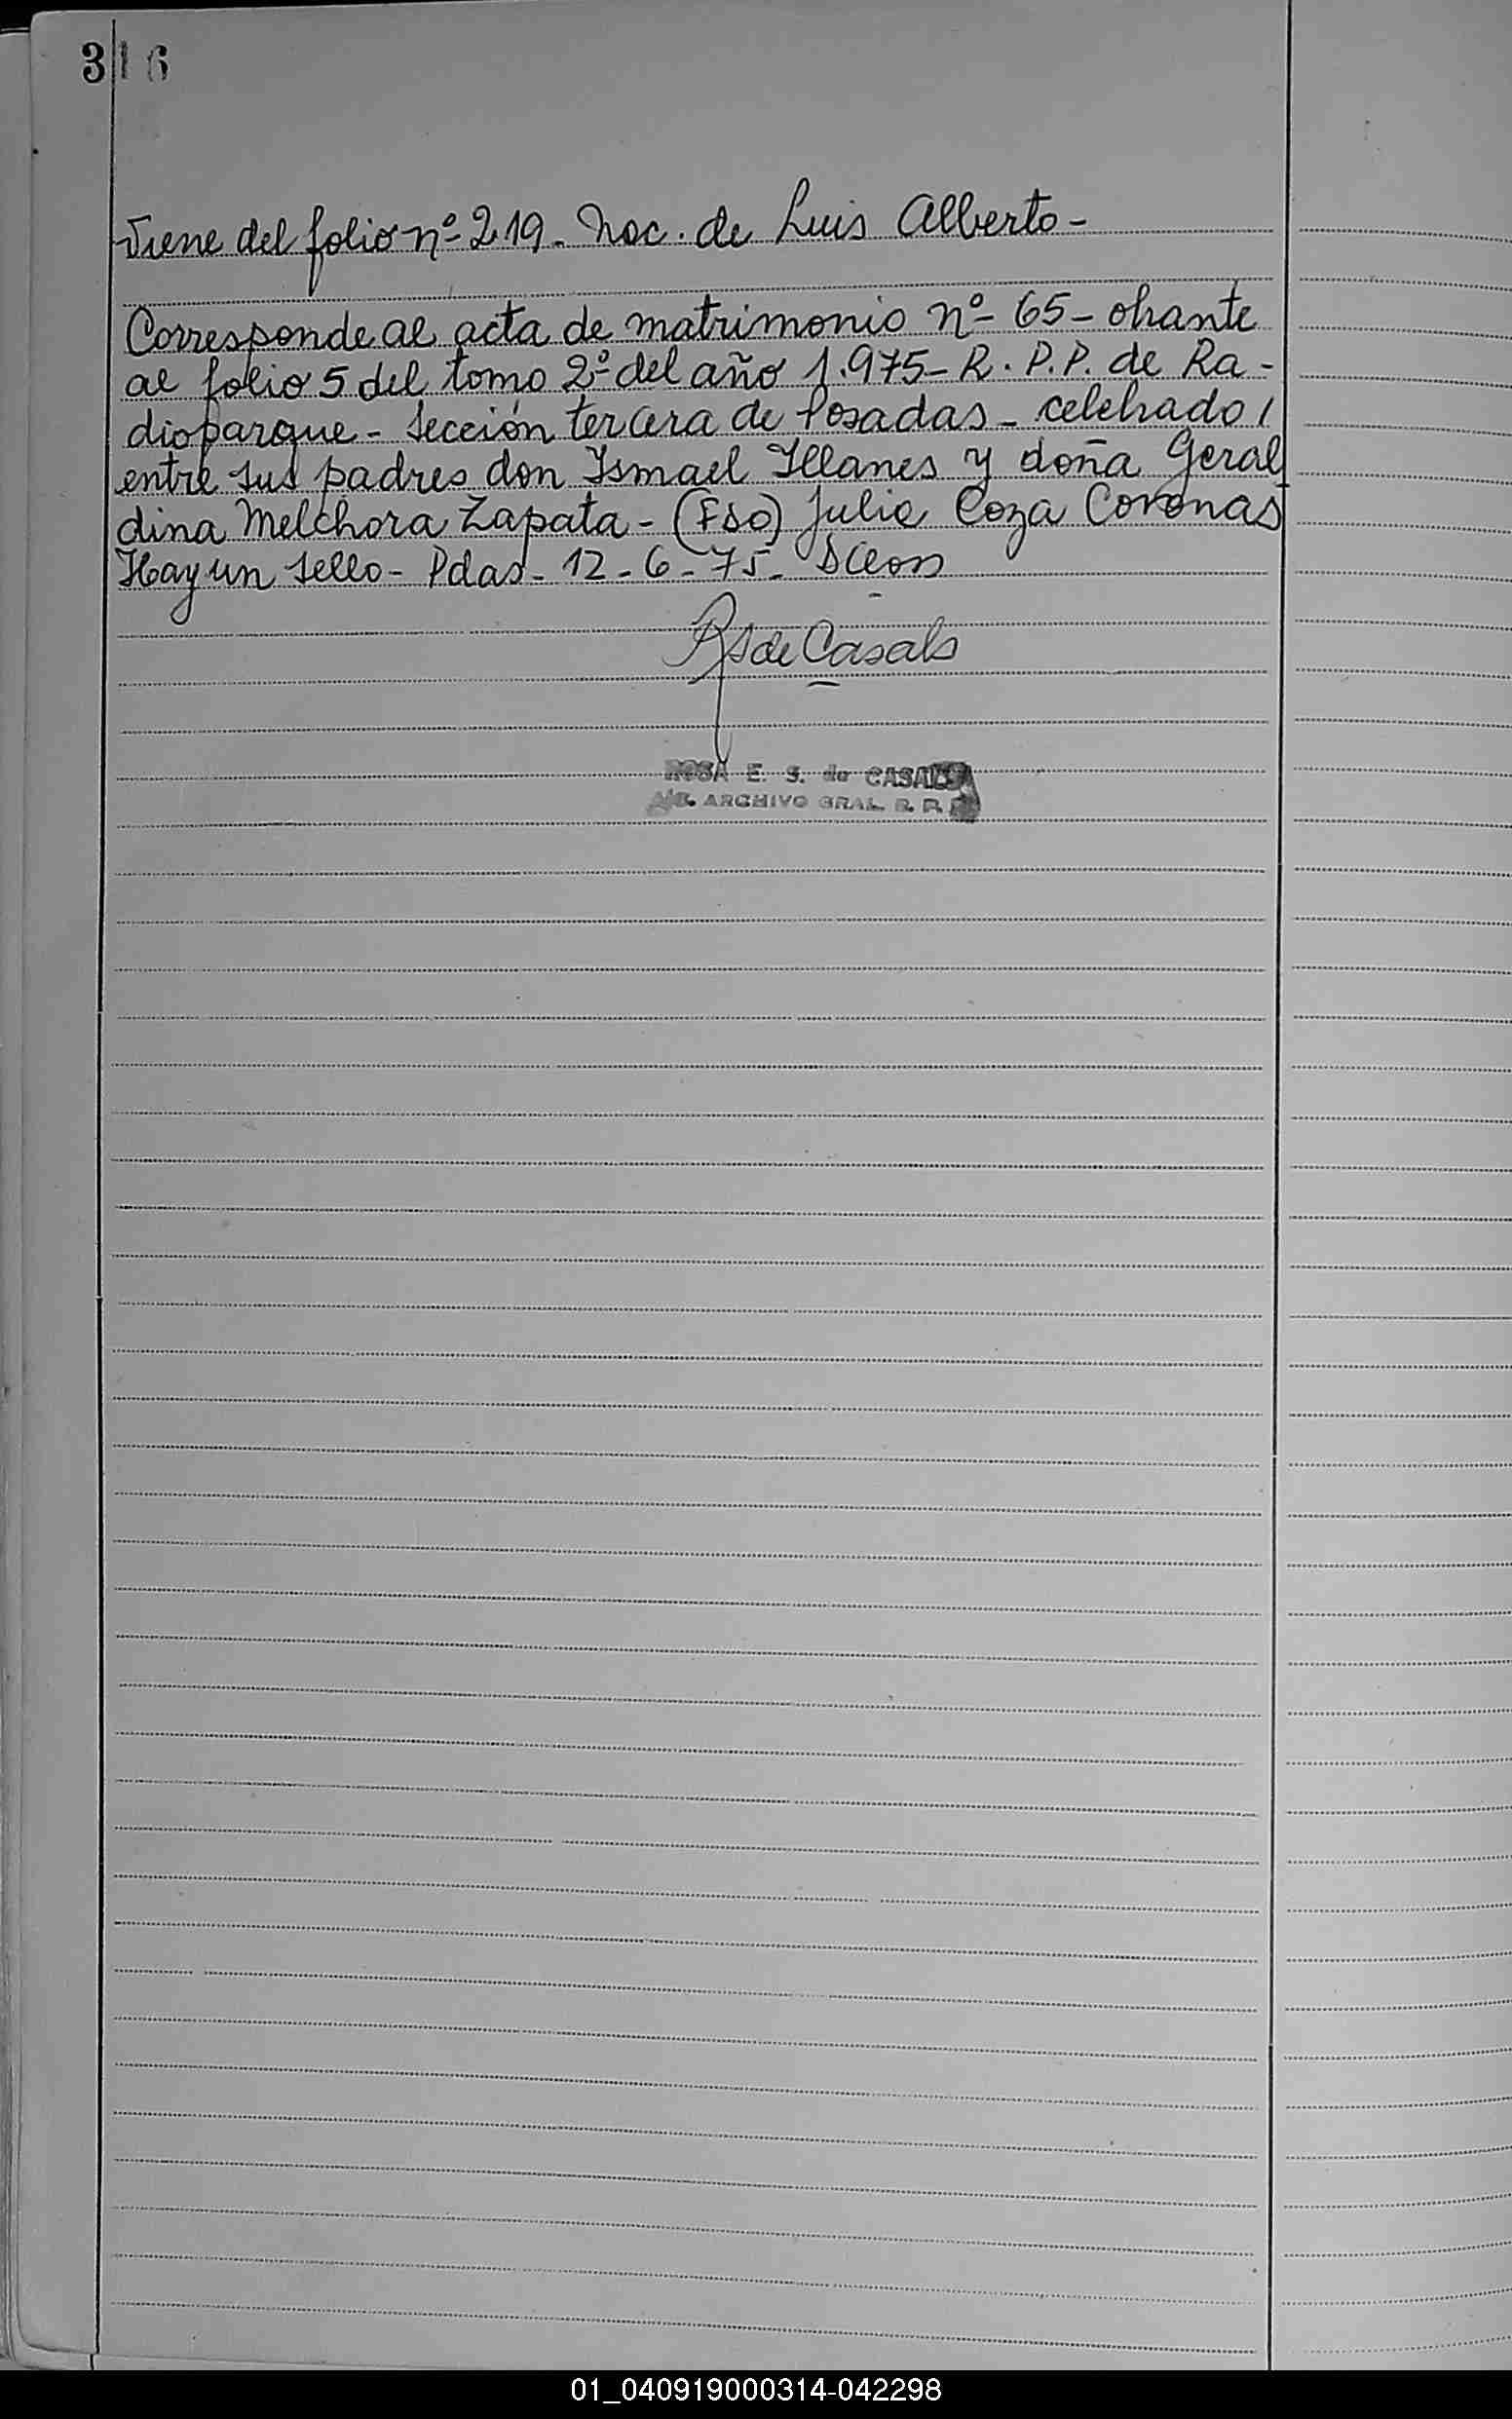 316
Viene del folio nº 219. Nac. de Luis Alberto-
Corresponde al acta de matrimonio nº 65- obrante
al folio 5 del tomo 2º del año 1.975- R. P.P. de Ra-
dioparque- Sección tercera de Posadas- celebrado/
entre sus padres don Ismael Illanes y doña Geral
dina Melchora Zapata- (Fdo) Julio Coza Coronas
Hay un sello- Pdas- 12-6-75-
RS de Casals
ROSA E. S. de CASALS
ARCHIVO GRAL. R. P.
01_040919000314-042298